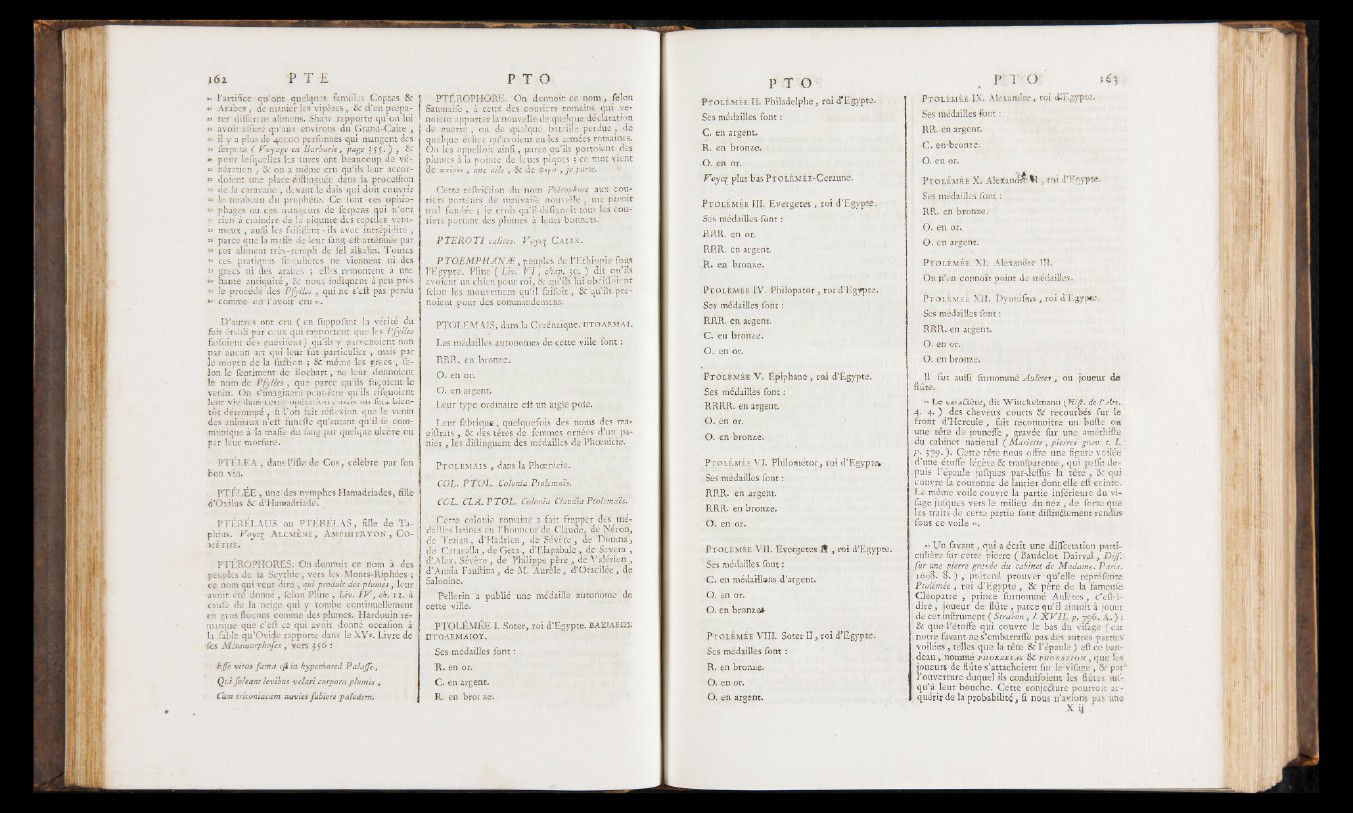 162 PTE PTO
» l'artifice qu'ont quelques familles Coptes &
» Arabes, de manier les vipères, & d'en prépa-
» rer différens alimens. Shaw rapporte qu'on lui
» avoit assuré qu'aux environs du Grand-Caire,
» il y a plus de 40000 personnes qui mangent des
» serpens ( Voyage en Barbarie, page 355. ), &
» pour lesquelles les turcs ont beaucoup de vé-
» nération, & on a même cru qu'ils leur accor-
» doient une place distinguée dans la procession
» de la caravane, devant le dais qui doit couvrir
» le tombeau du prophète. Ce sont ces ophio-
» phages ou ces mangeurs de serpens qui n'ont
» rien à craindre de la piquure des reptiles veni-
» meux, aussi les saisissent-ils avec intrépidité,
» parce que la masse de leur sang est atténuée par
» cet aliment très-rempli de sel alkalin. Toutes
» ces pratiques singulières ne viennent ni des
» grecs ni des arabes ; elles remontent à une
» haute antiquité, & nous indiquent à peu près
» le procédé des Psylles, qui ne s'est pas perdu
» comme on l'avoit cru ».
D'autres ont cru ( en supposant la vérité du
fait établi par ceux qui rapportent que les Psylles
faisoient des guérisons ) qu'ils y parvenoient non
par aucun art qui leur fût particulier, mais par
le moyen de la suction ; & même les grecs, se-
lon le sentiment de Bochart, ne leur donnoient
le nom de Psylles, que parce qu'ils suçoient le
venin. On s'imaginera peut-être qu'ils risquoient
leur vie dans cette opération, mais on sera bien-
tôt détrompé, si l'on fait réflexion que le venin
des animaux n'est funeste qu'autant qu'il se com-
munique à la masse du sang par quelque ulcère ou
par leur morsure.
PTÉLEA, dans l'isle de Cos, célèbre par son
bon vin.
PTÉLÉE, une des nymphes Hamadriades, fille
d'Oxilus & d'Hamadriade.
PTÉRÉLAÜS ou PTÉRÉLAS, fille de Ta-
phius. Voyez ALCMÈNE, AMPHITRYON, CO-
MÈTHE.
PTÉROPHORES. On donnoit ce nom à des
peuples de la Scythie, vers les Monts-Riphées ;
ce nom qui veut dire, qui produit des plumes, leur
avoit été donné, selon Pline, Liv. IV, ch. 12. à
cause de la neige qui y tombe continuellement
en gros flocons comme des plumes. Hardouin re-
marque que c'est ce qui avoit donné occasion à
la fable qu'Ovide rapporte dans le XVe. Livre de
ses Métamorphoses, vers 356 :
Esse viros fama est in hyperboreâ Palasse,
Qui soleant levibus velari corpora plumis,
Cùm tritoniacam novies subiere paludem.
PTÉROPHORE. On donnoit ce nom, selon
Saumaise, à ceux des couriers romains qui ve-
noient apporter la nouvelle de quelque déclaration
de guerre, ou de quelque bataille perdue, de
quelque échec qu'avoient eu les armées romaines.
On les appelloit ainsi, parce qu'ils portoient des
plumes à la pointe de leurs piques ; ce mot vient
de
, une aîle, & de
, je porte.
Cette restriction du nom Ptérophore aux cou-
riers porteurs de mauvaise nouvelle, me paroît
mal fondée ; je crois qu'il désignoit tous les cou-
riers portant des plumes à leurs bonnets.
PTEROTI calices. Voyez CALIX.
PTOEMPHANÆ, peuples de l'Ethiopie sous
l'Egypte. Pline ( Liv. VI, chap. 30. ) dit qu'ils
avoient un chien pour roi, & qu'ils lui obéissoient
selon les mouvemens qu'il faisoit, & qu'ils pre-
noient pour des commandemens.
PTOLEMAIS, dans la Cyrénaïque. ΠΤΟΛΕΜΑΙ.
Les médailles autonomes de cette ville sont :
RRR. en bronze.
O. en or.
O. en argent.
Leur type ordinaire est un aigle posé.
Leur fabrique, quelquefois des noms des ma-
gistrats, & des têtes de femmes ornées d'un pa-
nier, les distinguent des médailles de Phœnicie.
PTOLEMAIS, dans la Phœnicie.
COL. PTOL. Colonia Ptolemaïs.
COL. CLA. PTOL. Colonia Claudia Ptolemaïs.
Cette colonie romaine a fait frapper des mé-
dailles latines en l'honneur de Claude, de Néron,
de Trajan, d'Hadrien, de Sévère, de Domna,
de Caracalla, de Geta, d'Elagabale, de Severa,
d'Alex. Sévère, de Philippe père, de Valérien,
d'Annia Faustina, de M. Aurèle, d'Otacilée, de
Salonine.
Pellerin a publié une médaille autonome de
cette ville.
PTOLÉMÉE I. Soter, roi d'Egypte. ΒΑΣΙΛΕΩΣ
ΠΤΟΛΕΜΑΙΟΥ.
Ses médailles sont :
R. en or.
C. en argent.
R. en bronze.
PTO
PTOLÉMÉE II. Philadelphe, roi d'Egypte.
Ses médailles sont :
C. en argent.
R. en bronze.
O. en or.
Voyez plus bas PTOLÉMÉE-Ceraune.
PTOLÉMÉE III. Evergetes, roi d'Egypte.
Ses médailles sont :
RRR. en or.
RRR. en argent.
R. en bronze.
PTOLÉMÉE IV. Philopator, roi d'Egypte.
Ses médailles sont :
RRR. en argent.
C. en bronze.
O. en or.
PTOLÉMÉE V. Epiphane, roi d'Egypte.
Ses médailles sont :
RRRR. en argent.
O. en or.
O. en bronze.
PTOLÉMÉE VI. Philométor, roi d'Egypte.
Ses médailles sont :
RRR. en argent.
RRR. en bronze.
O. en or.
PTOLÉMÉE VII. Evergetes II, roi d'Egypte.
Ses médailles sont :
C. en médaillons d'argent.
O. en or.
O. en bronze.
PTOLÉMÉE VIII. Soter II, roi d'Egypte.
Ses médailles sont :
R. en bronze.
O. en or.
O. en argent.
PTO 163
PTOLÉMÉE IX. Alexandre, roi d'Egypte.
Ses médailles sont :
RR. en argent.
C. en bronze.
O. en or.
PTOLÉMÉE X. Alexandre II, roi d'Egypte.
Ses médailles sont :
RR. en bronze.
O. en or.
O. en argent.
PTOLÉMÉE XI. Alexandre III.
On n'en connoît point de médailles.
PTOLÉMÉE XII. Dyonisius, roi d'Egypte.
Ses médailles sont :
RRR. en argent.
O. en or.
O. en bronze.
Il fut aussi surnommé Auletes, ou joueur de
flûte.
» Le caractère, dit Winckelmann ( Hist. de l'Art.
4. 4. ) des cheveux courts & recourbés sur le
front d'Hercule, fait reconnoître un buste ou
une tête de jeunesse, gravée sur une améthiste
du cabinet national ( Mariette, pierres grav. t. I.
p. 379. ). Cette tête nous offre une figure voilée
d'une étoffe légère & transparente, qui passe de-
puis l'épaule jusques par-dessus la tête, & qui
couvre la couronne de laurier dont elle est ceinte.
Le même voile couvre la partie inférieure du vi-
sage jusques vers le milieu du nez, de sorte que
les traits de cette partie sont distinctement rendus
sous ce voile ».
» Un savant, qui a écrit une dissertation parti-
culière sur cette pierre ( Baudelot Dairval, Diss.
sur une pierre gravée du cabinet de Madame. Paris.
1698. 8. ), prétend prouver qu'elle représente
Ptolémée, roi d'Egypte, & père de la fameuse
Cléopatre, prince surnommé Aulètes, c'est-à-
dire, joueur de flûte, parce qu'il aimoit à jouer
de cet instrument ( Strabon, l. XVII. p. 796. A. ) ;
& que l'étoffe qui couvre le bas du visage ( car
notre savant ne s'embarrasse pas des autres parties
voilées, telles que la tête & l'épaule ) est ce ban-
deau, nommé PHORBEIAS & PHORBEION, que les
joueurs de flûte s'attachoient sur le visage, & par
l'ouverture duquel ils conduisoient les flûtes jus-
qu'à leur bouche. Cette conjecture pourroit ac-
quérir de la probabilité, si nous n'avions pas une
X ij